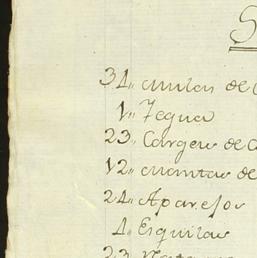 S
31,, mulas de
1,, Yegua
23,, Cargas de
12,, mantas de
21,, Aparejos
1,, Esquilas
23,,